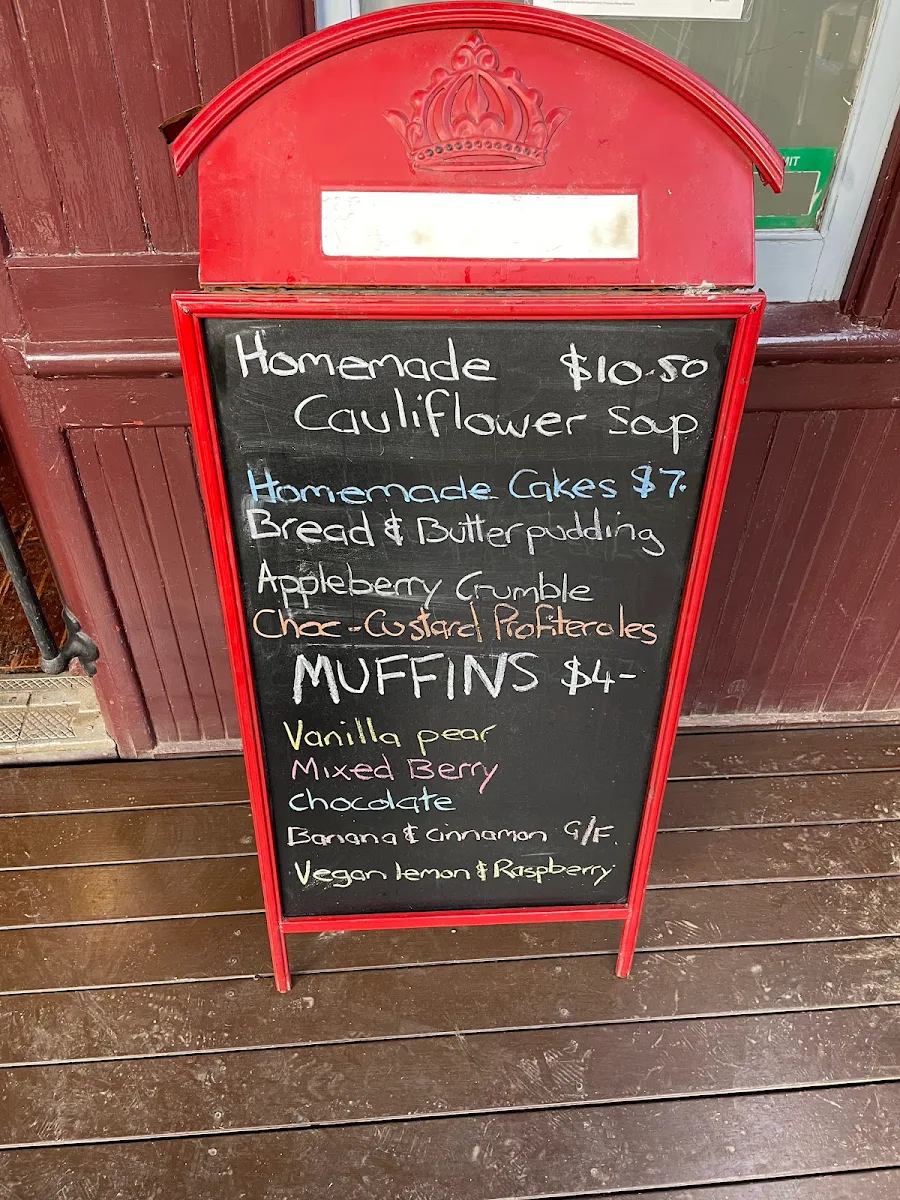 MIT
Homemade $10.50
Cauliflower Soup
Homemade Cakes $7.
Bread & Butter pudding
Appleberry Crumble
Choc-Custard Profiteroles
MUFFINS $4-
Vanilla pear
Mixed Berry
chocolate
Banana & cinnamon G/F.
Vegan lemon & Raspberry